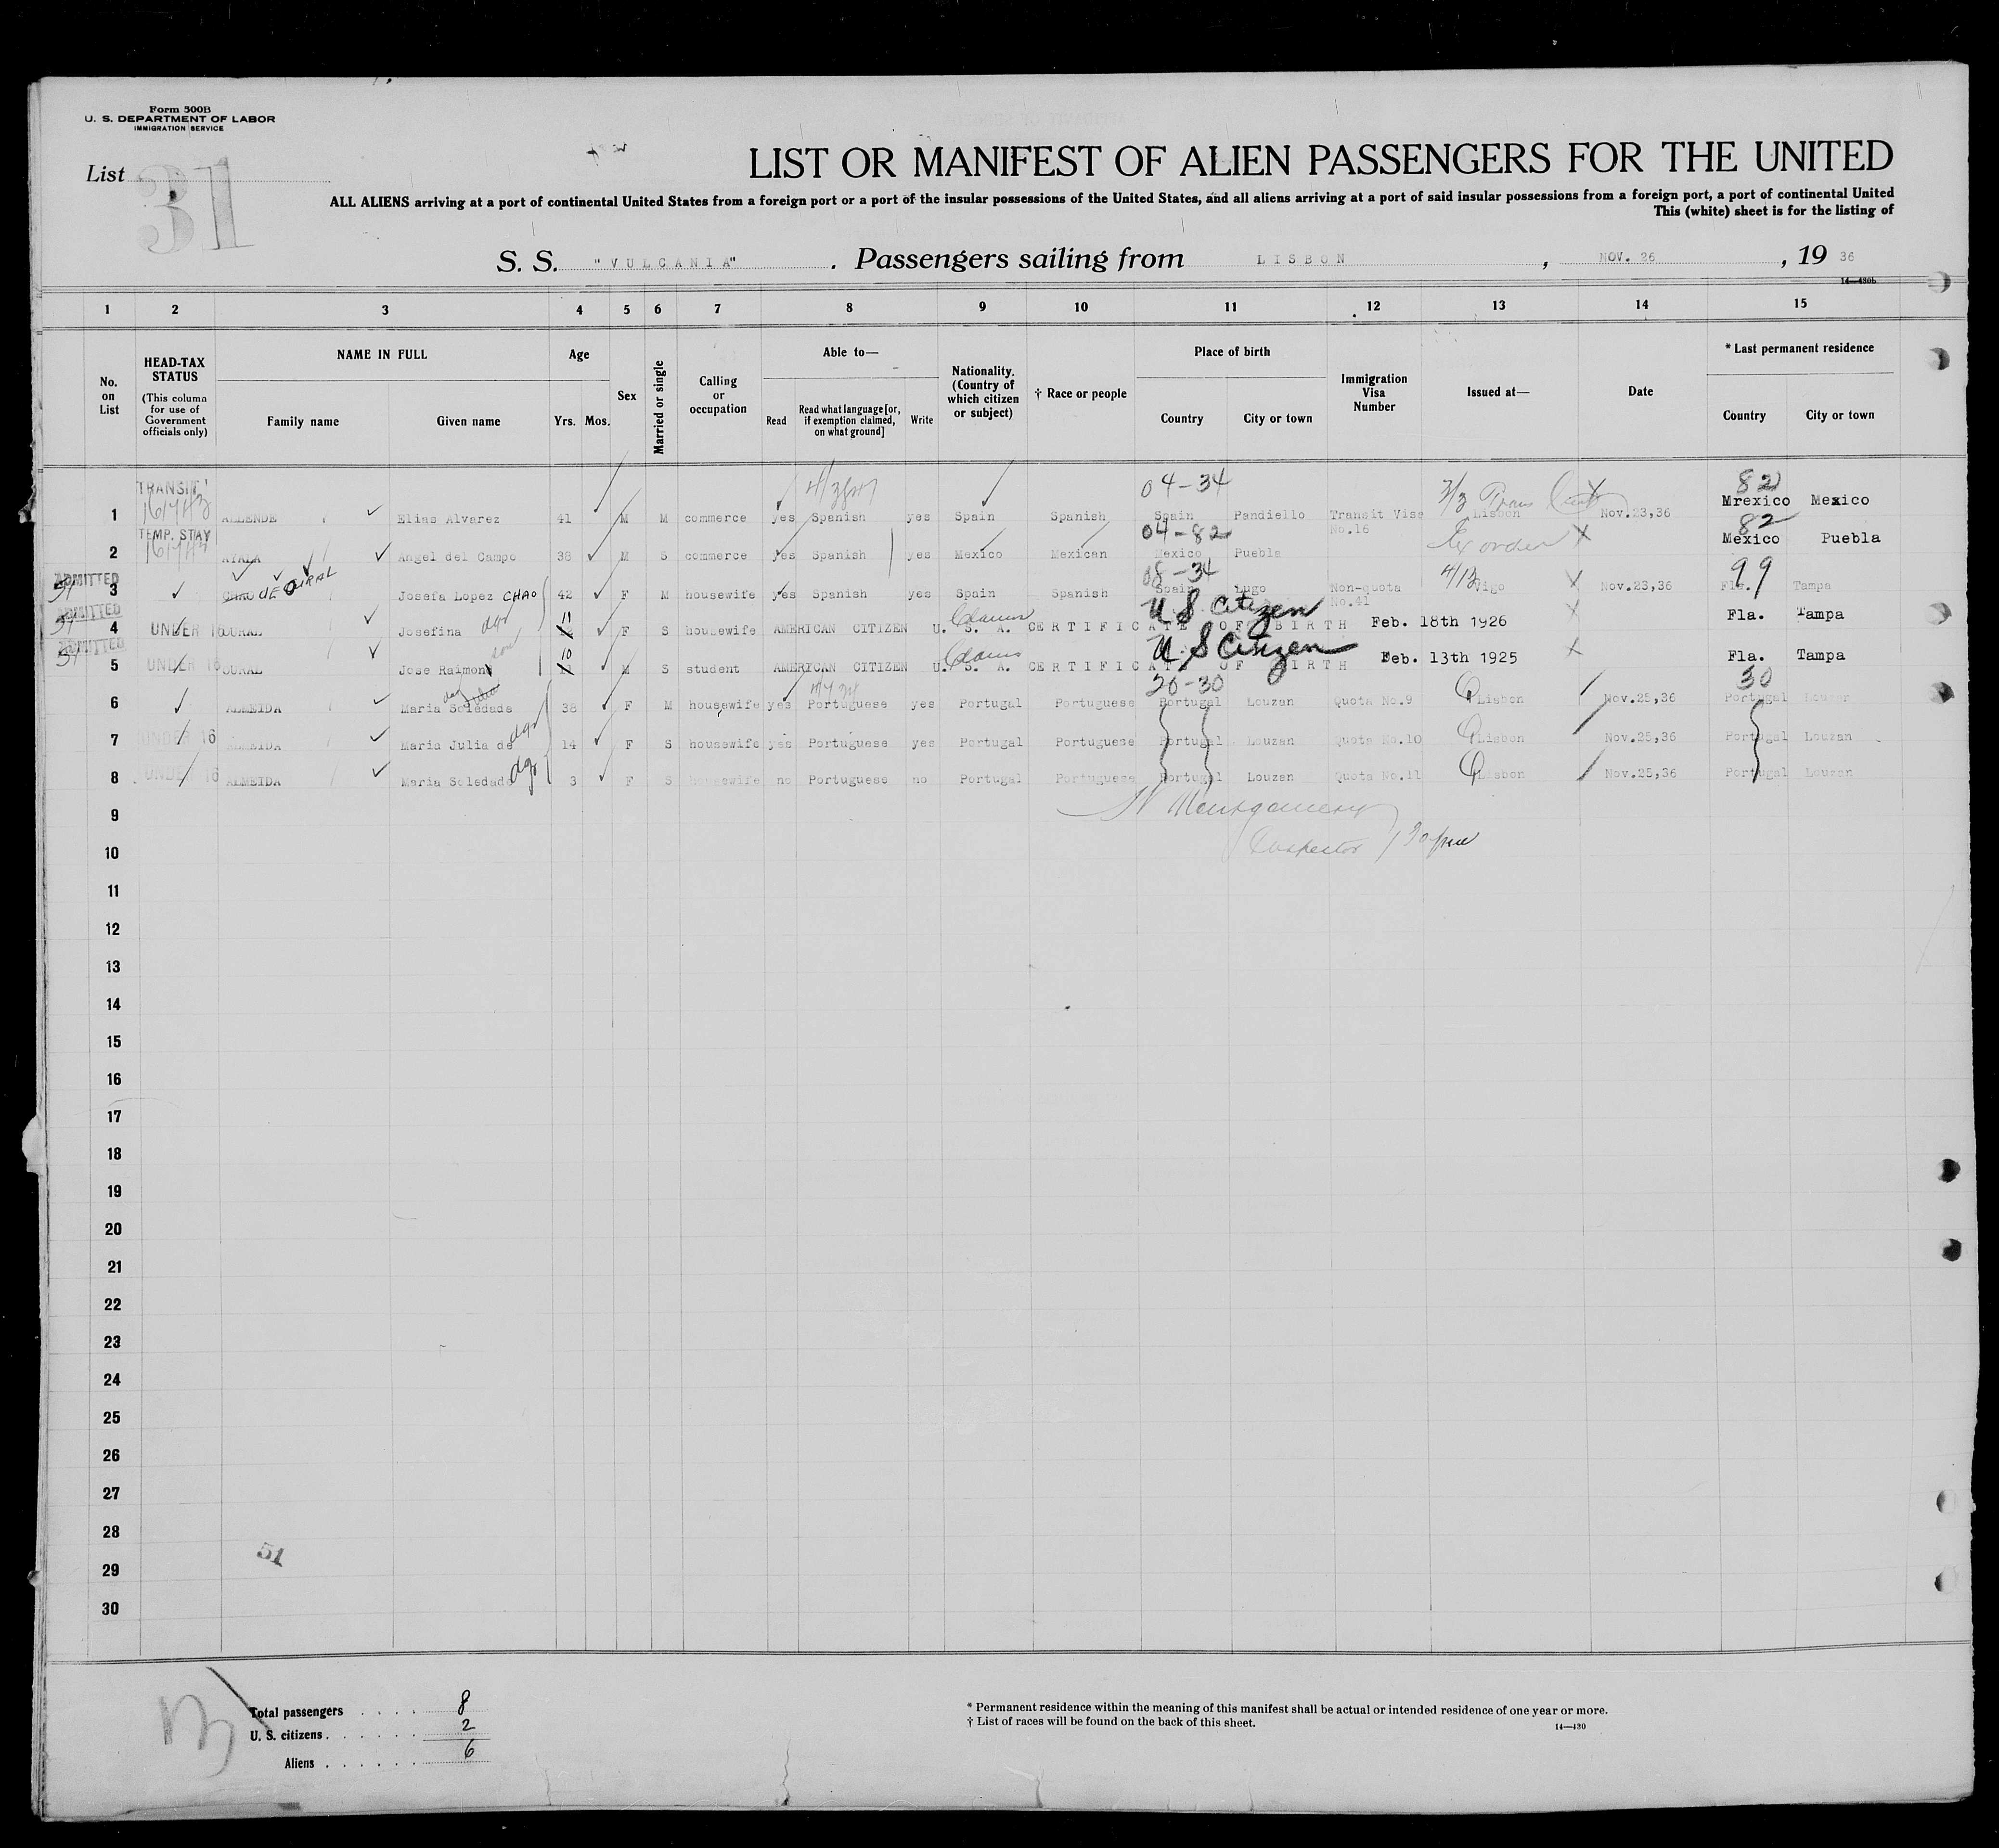 Form 500B
U. S. DEPARTMENT OF LABOR
IMMIGRATION SERVICE
List 31
LIST OR MANIFEST OF ALIEN PASSENGERS FOR THE UNITED
ALL ALIENS arriving at a port of continental United States from a foreign port or a port of the insular possessions of the United States, and all aliens arriving at a port of said insular possessions from a foreign port, a port of continental United
This (white) sheet is for the listing of
S. S. "VULCANIA". Passengers sailing from LISBON, NOV. 26, 19 36
14—430b
1 2 3 4 5 6 7 8 9 10 11 12 13 14 15
No. on List
HEAD-TAX STATUS (This column for use of Government officials only)
NAME IN FULL Family name Given name
Age Yrs. Mos.
Sex
Married or single
Calling or occupation
Able to— Read Read what language [or, if exemption claimed, on what ground] Write
Nationality. (Country of which citizen or subject)
† Race or people
Place of birth Country City or town
Immigration Visa Number
Issued at—
Date
* Last permanent residence Country City or town
TRANSIT 04-34 82
1 ALLENDE Elias Alvarez 41 M M commerce yes Spanish yes Spain Spanish Spain Pandiello Transit Visa No.16 Lisbon Nov.23,36 Mrexico Mexico
TEMP. STAY 04-82 82
2 AYALA Angel del Campo 38 M S commerce yes Spanish yes Mexico Mexican Mexico Puebla Mexico Puebla
ADMITTED 08-34 4/13 99
3 CHAO DE DURAL Josefa Lopez CHAO 42 F M housewife yes Spanish yes Spain Spanish Spain Lugo Non-quota No.41 Vigo Nov.23,36 Fla. Tampa
ADMITTED 11 Claims U S Citizen
4 UNDER 16 DURAL Josefina dgr F S housewife AMERICAN CITIZEN U. S. A. CERTIFICATE OF BIRTH Feb. 18th 1926 Fla. Tampa
ADMITTED son 10 Claims U. S Citizen
5 UNDER 16 DURAL Jose Raimond M S student AMERICAN CITIZEN U. S. A. CERTIFICATE OF BIRTH Feb. 13th 1925 Fla. Tampa
20-30 30
6 ALMEIDA Maria Soledade 38 F M housewife yes Portuguese yes Portugal Portuguese Portugal Louzan Quota No.9 Lisbon Nov.25,36 Portugal Louzan
7 UNDER 16 ALMEIDA Maria Julia de dgr 14 F S housewife yes Portuguese yes Portugal Portuguese Portugal Louzan Quota No.10 Lisbon Nov.25,36 Portugal Louzan
8 UNDER 16 ALMEIDA Maria Soledade dgr 3 F S housewife no Portuguese no Portugal Portuguese Portugal Louzan Quota No.11 Lisbon Nov.25,36 Portugal Louzan
9 Montgomery
10 Inspector
11
12
13
14
15
16
17
18
19
20
21
22
23
24
25
26
27
28
51
29
30
Total passengers . . . . 8
U. S. citizens . . . . . . 2
Aliens . . . . . . 6
* Permanent residence within the meaning of this manifest shall be actual or intended residence of one year or more.
† List of races will be found on the back of this sheet.
14—430